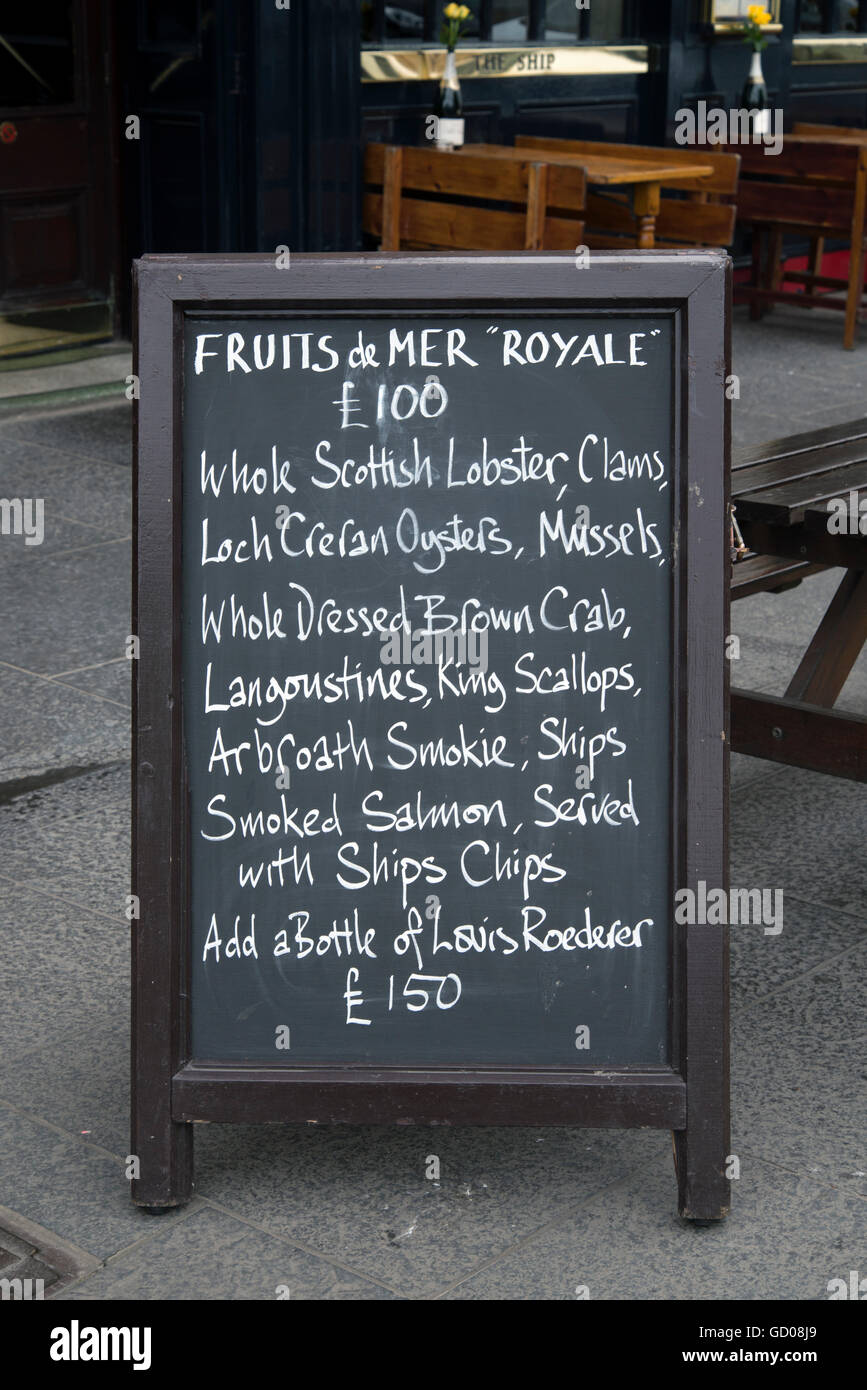 THE SHIP
FRUITS de MER "ROYALE"
£100
Whole Scottish Lobster, Clams,
Loch Creran Oysters, Mussels,
Whole Dressed Brown Crab,
Langoustines, King Scallops,
Arbroath Smokie, Ships
Smoked Salmon, Served
with Ships Chips
Add a Bottle of Louis Roederer
£150
alamy
a
a
a
alamy stock photo
GD08J9
www.alamy.com